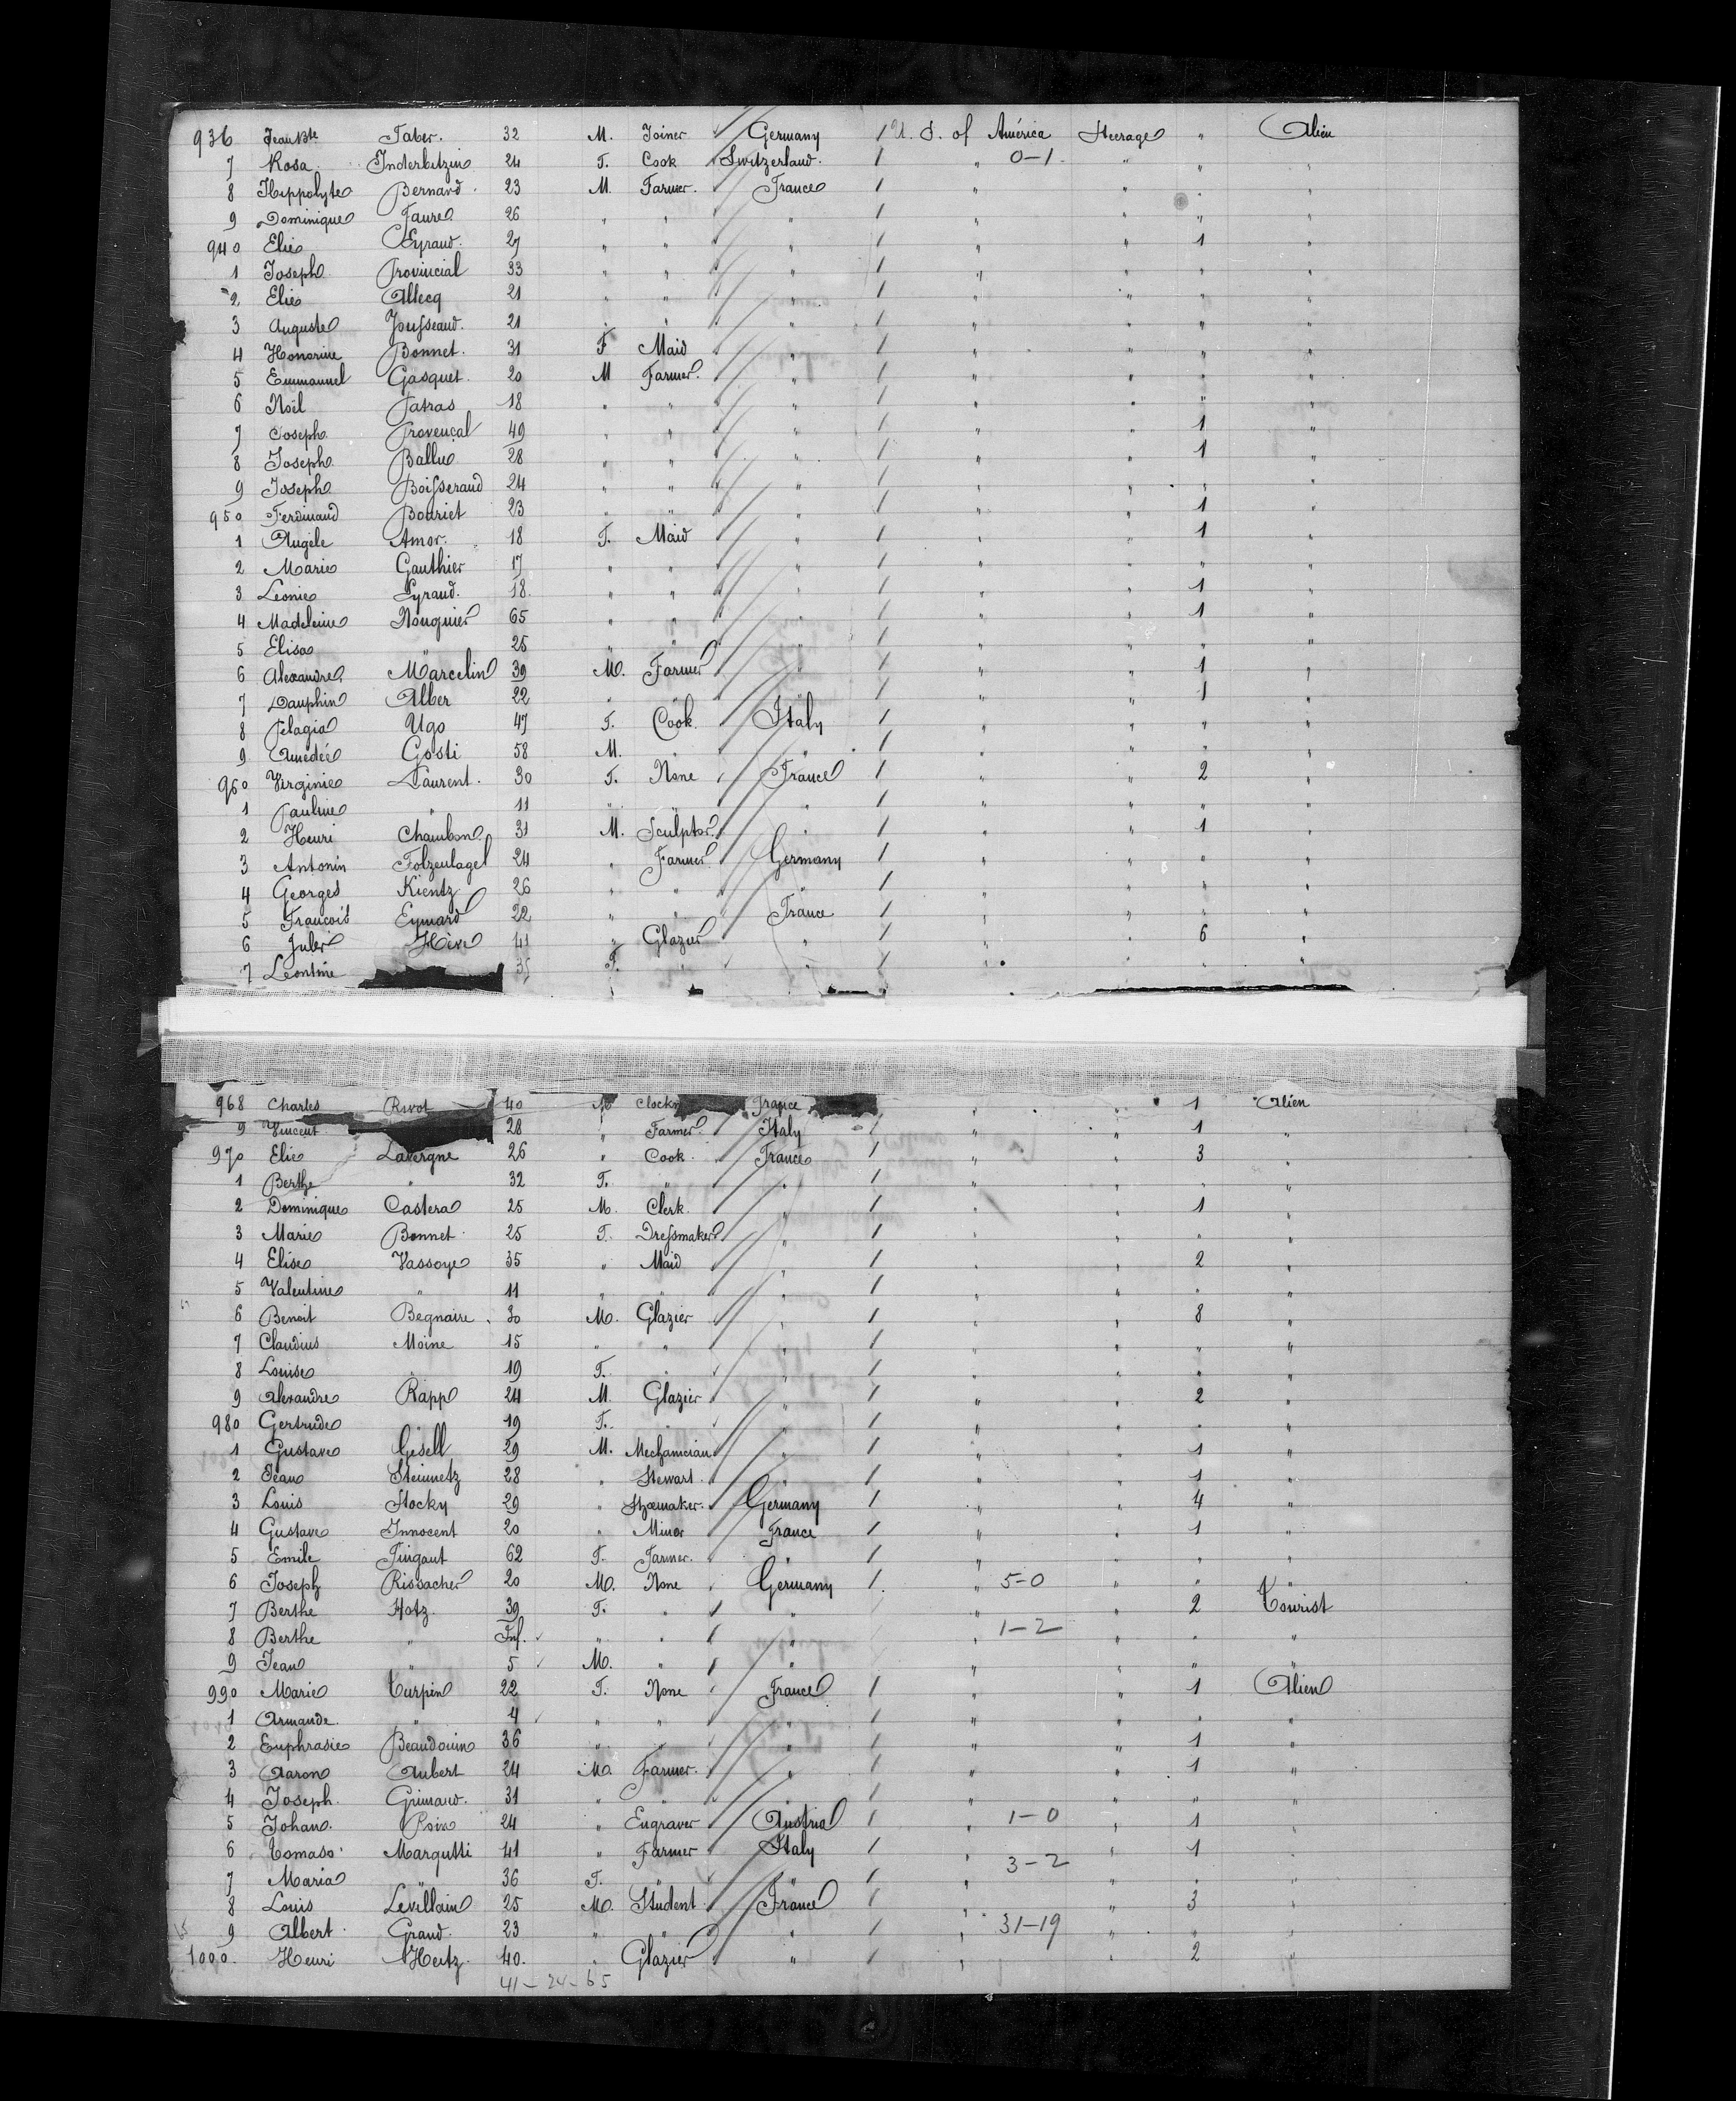 936 Jean Bte Faber. 32 M. Joiner Germany / U. S. of América Steerage " Alien
7 Rosa Inderbitzin 24 F. Cook Switzerland. / " 0-1 " " "
8 Hippolyte Bernard. 23 M. Farmer. France / " " " "
9 Dominique Faure 26 " " " / " " " "
940 Elie Eyraud. 27 " " " / " " 1 "
1 Joseph Provincial 33 " " " / " " " "
2 Elie Allecq 21 " " " / " " " "
3 Auguste Jousseaud. 21 " " " / " " " "
4 Honorine Bonnet. 31 F Maid " / " " " "
5 Emmanuel Gasquet. 20 M Farmer. " / " " " "
6 Noël Patras 18 " " " / " " " "
7 Joseph Provençal 49 " " " / " " 1 "
8 Joseph Ballue 28 " " " / " " 1 "
9 Joseph Boisseraud 24 " " " / " " " "
950 Ferdinand Bouriet 23 " " " / " " 1 "
1 Angèle Amor. 18 F. Maid " / " " 1 "
2 Marie Gauthier 17 " " " / " " " "
3 Léonie Eyraud. 18. " " " / " " 1 "
4 Madeleine Nouguier 65 " " " / " " 1 "
5 Elisa " 25 " " " / " " " "
6 Alexandre Marcelin 39 M. Farmer " / " " 1 "
7 Dauphin Alber 22 " " " / " " 1 "
8 Pelagia Ugo 47 F. Cook Italy / " " " "
9 Amédée Gosti 58 M. " " / " " " "
960 Virginie Laurent. 30 F. None France / " " 2 "
1 Pauline " 11 " " " / " " " "
2 Henri Chambon 31 M. Sculptor " / " " 1 "
3 Antonin Folzenlagel 24 " Farmer Germany / " " " "
4 Georges Kientz 26 " " " / " " " "
5 François Eymard 22 " " France / " " " "
6 Jules Hive 41 " Glazier " / " " 6 "
7 Léontine 35 F. " " / " " " "
968 Charles Rivot 40 M France " " 1 Alien
9 Vincent 28 " Farmer. Italy / " " 1 "
970 Elie Lavergne 26 " Cook France / " " 3 "
1 Berthe " 32 F. " " / " " " "
2 Dominique Castera 25 M. Clerk. " / " " 1 "
3 Marie Bonnet. 25 F. Dressmaker " / " " " "
4 Elise Vassoye 35 " Maid " / " " 2 "
5 Valentine " 11 " " " / " " " "
6 Benoit Begnaire 30 M. Glazier " / " " 8 "
7 Claudius Moine 15 " " " / " " " "
8 Louise " 19 F. " " / " " " "
9 Alexandre Rapp 24 M. Glazier " / " " 2 "
980 Gertrude " 19 F. " " / " " " "
1 Gustave Gisell 29 M. Mechanician " / " " 1 "
2 Jean Steinmetz 28 " Stewart. " / " " 1 "
3 Louis Stocky 29 " Shoemaker. Germany / " " 4 "
4 Gustave Innocent 20 " Minor France / " " 1 "
5 Emile Fingaut 62 F. Farmer. " / " " " "
6 Joseph Rissacher 20 M. None Germany / " 5-0 " " "
7 Berthe Hotz. 39 F. " " / " " 2 Tourist
8 Berthe " Inf. " " " / " 1-2 " " "
9 Jean " 5 M. " " / " " " "
990 Marie Turpin 22 F. None France / " " 1 Alien
1 Armande. " 4 " " " / " " " "
2 Euphrasie Beaudouin 36 " " " / " " 1 "
3 Aaron Aubert 24 M. Farmer. " / " " 1 "
4 Joseph. Grimaud. 31 " " " / " " " "
5 Johan. Roix 24 " Engraver Austria / " 1-0 " 1 "
6 Tomaso Margutti 41 " Farmer Italy / " 3-2 " 1 "
7 Maria " 36 F. " " / " " " "
8 Louis Levillain 25 M. Student. France / " " 3 "
9 Albert Graud. 23 " " " / " 31-19 " " "
1000. Henri Hertz. 40. " Glazier " / " " 2 "
41-24-65